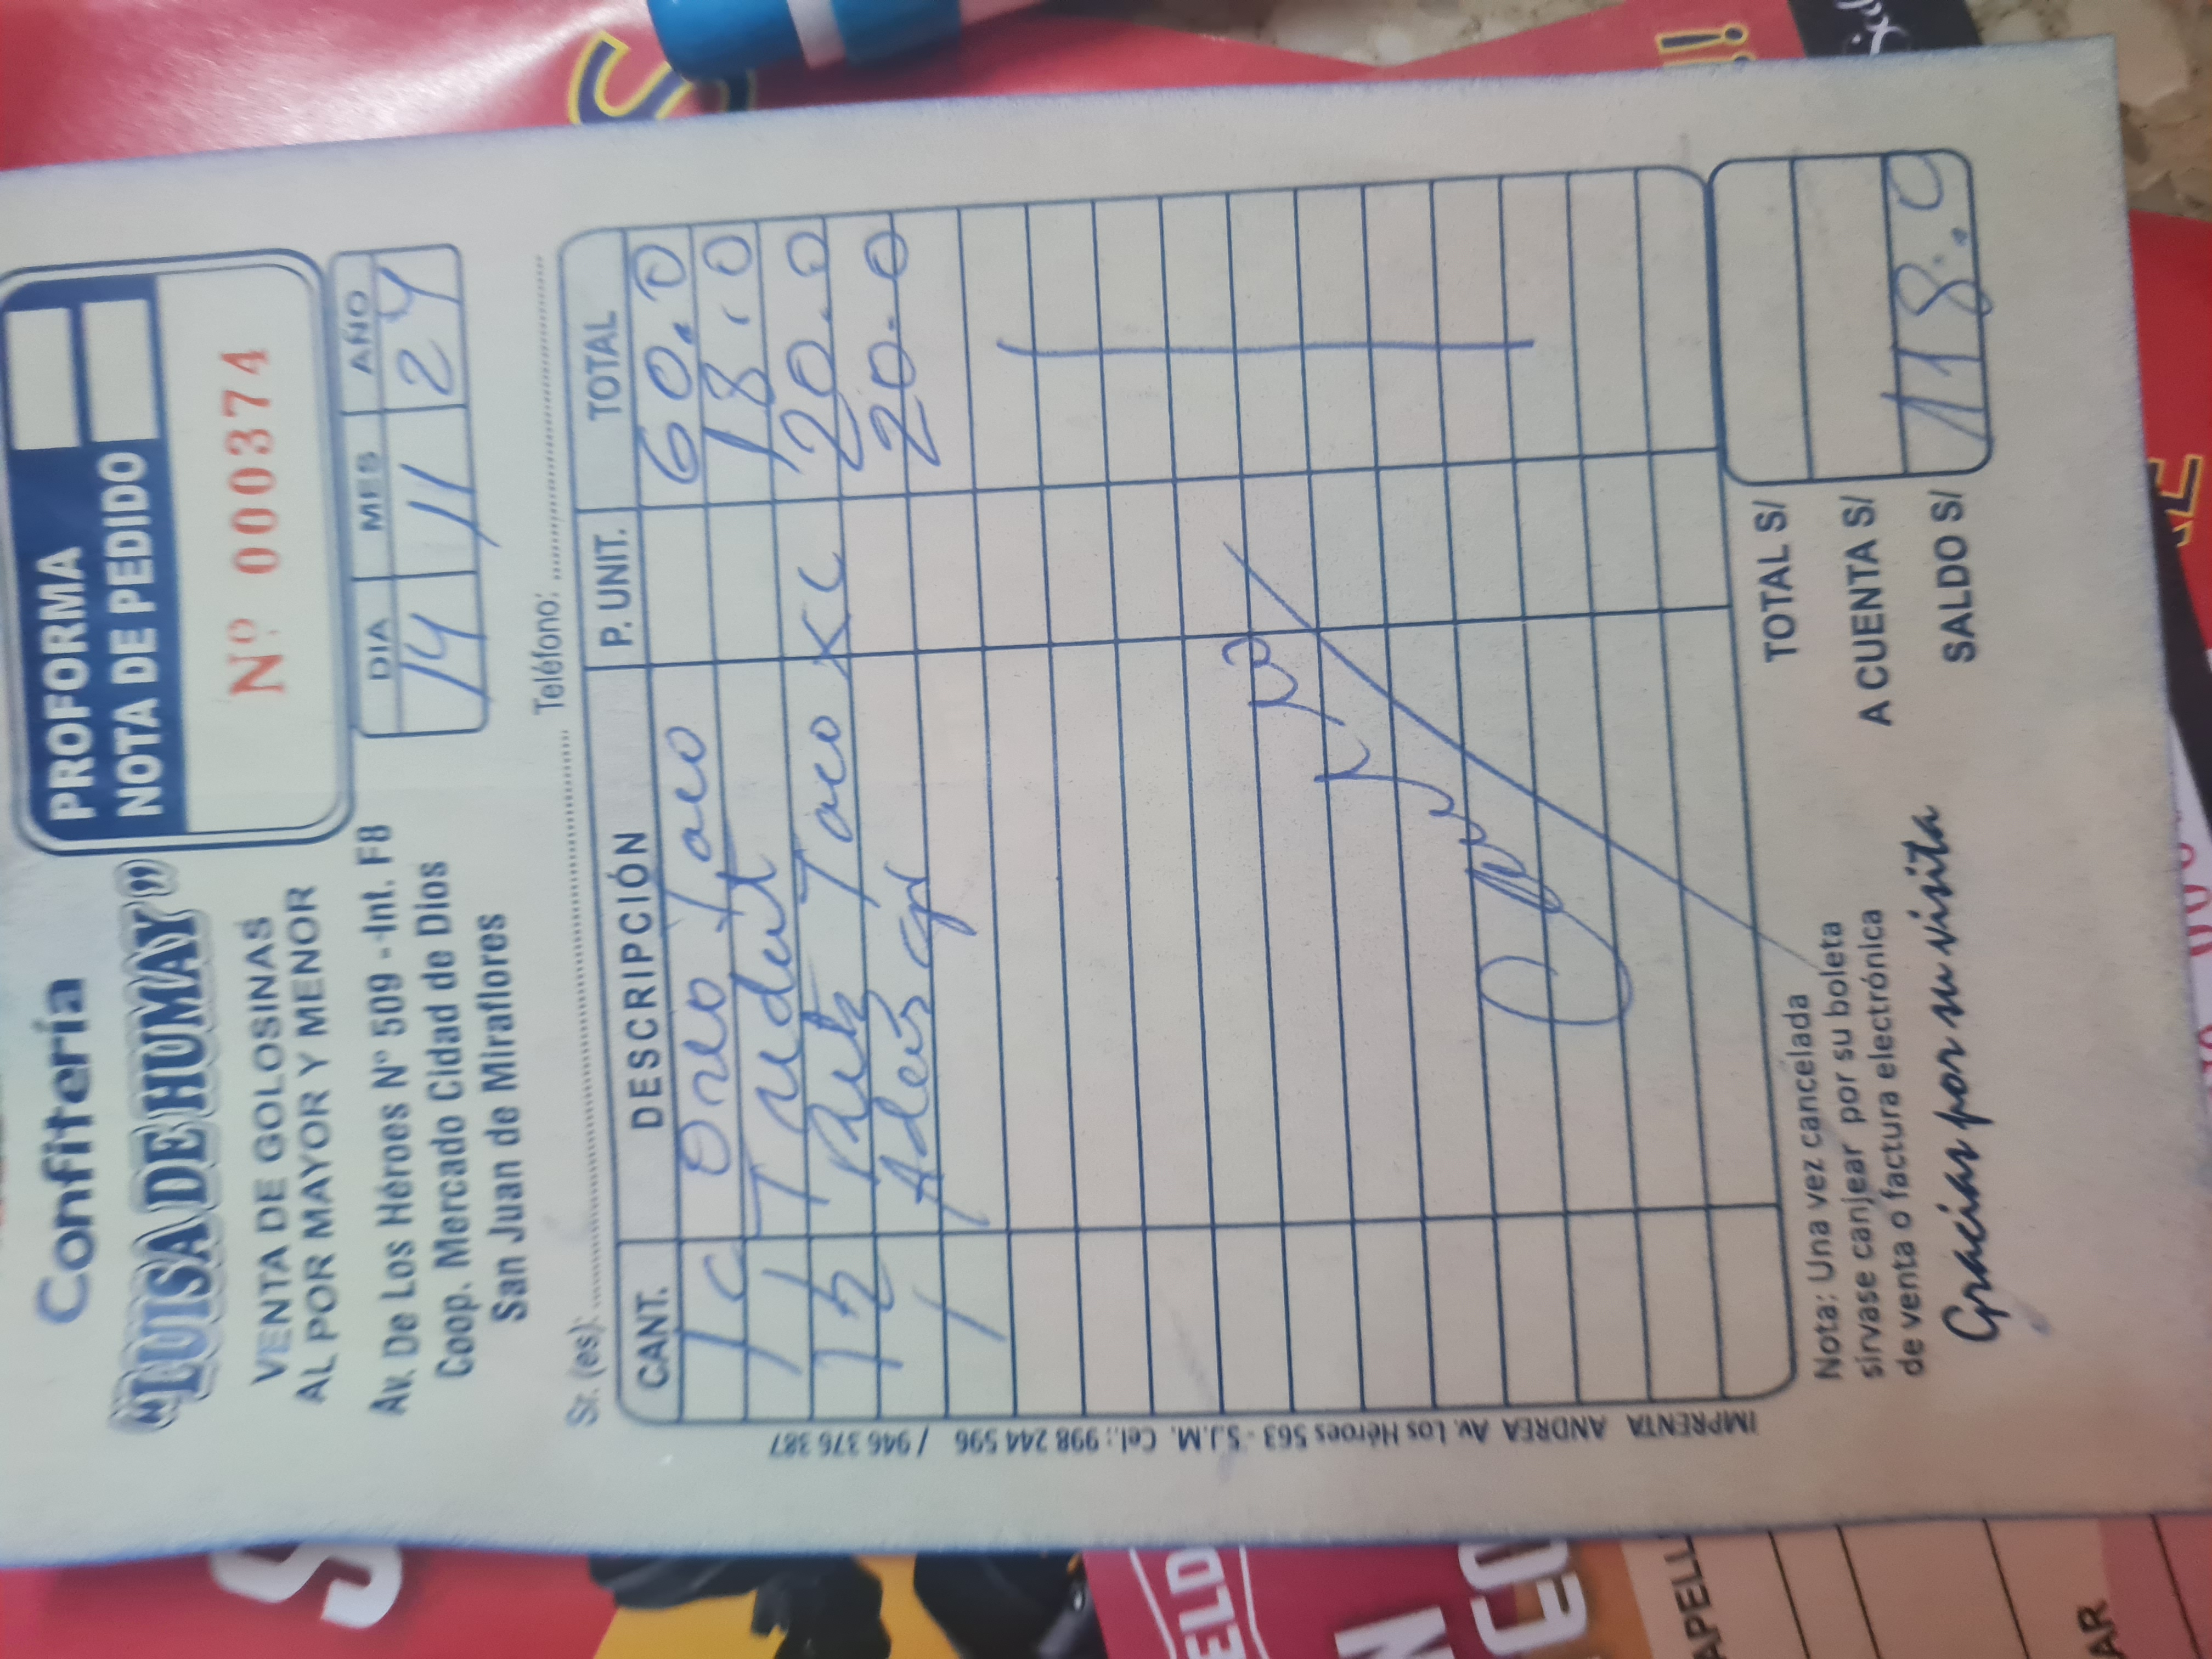 Confitería
"LUISA DE HUMAY"
VENTA DE GOLOSINAS
AL POR MAYOR Y MENOR
Av. De Los Héroes Nº 509 - Int. F8
Coop. Mercado Cidad de Dios
San Juan de Miraflores
PROFORMA
NOTA DE PEDIDO
Nº 000374
DIA MES AÑO
14 11 24
Sr. (es): Teléfono:
CANT. DESCRIPCIÓN P. UNIT. TOTAL
1c Oreo Taco 60.0
1 18.0
12 Ritz Taco 20.0
1 20.0
Cancelado
IMPRENTA ANDREA Av. Los Héroes 563 - S.J.M. Cel.: 998 244 596 / 946 376 387
TOTAL S/
A CUENTA S/
SALDO S/ 118.0
Nota: Una vez cancelada
sirvase canjear por su boleta
de venta o factura electrónica
Gracias por su visita
ELD
N
APELL
AR
!!